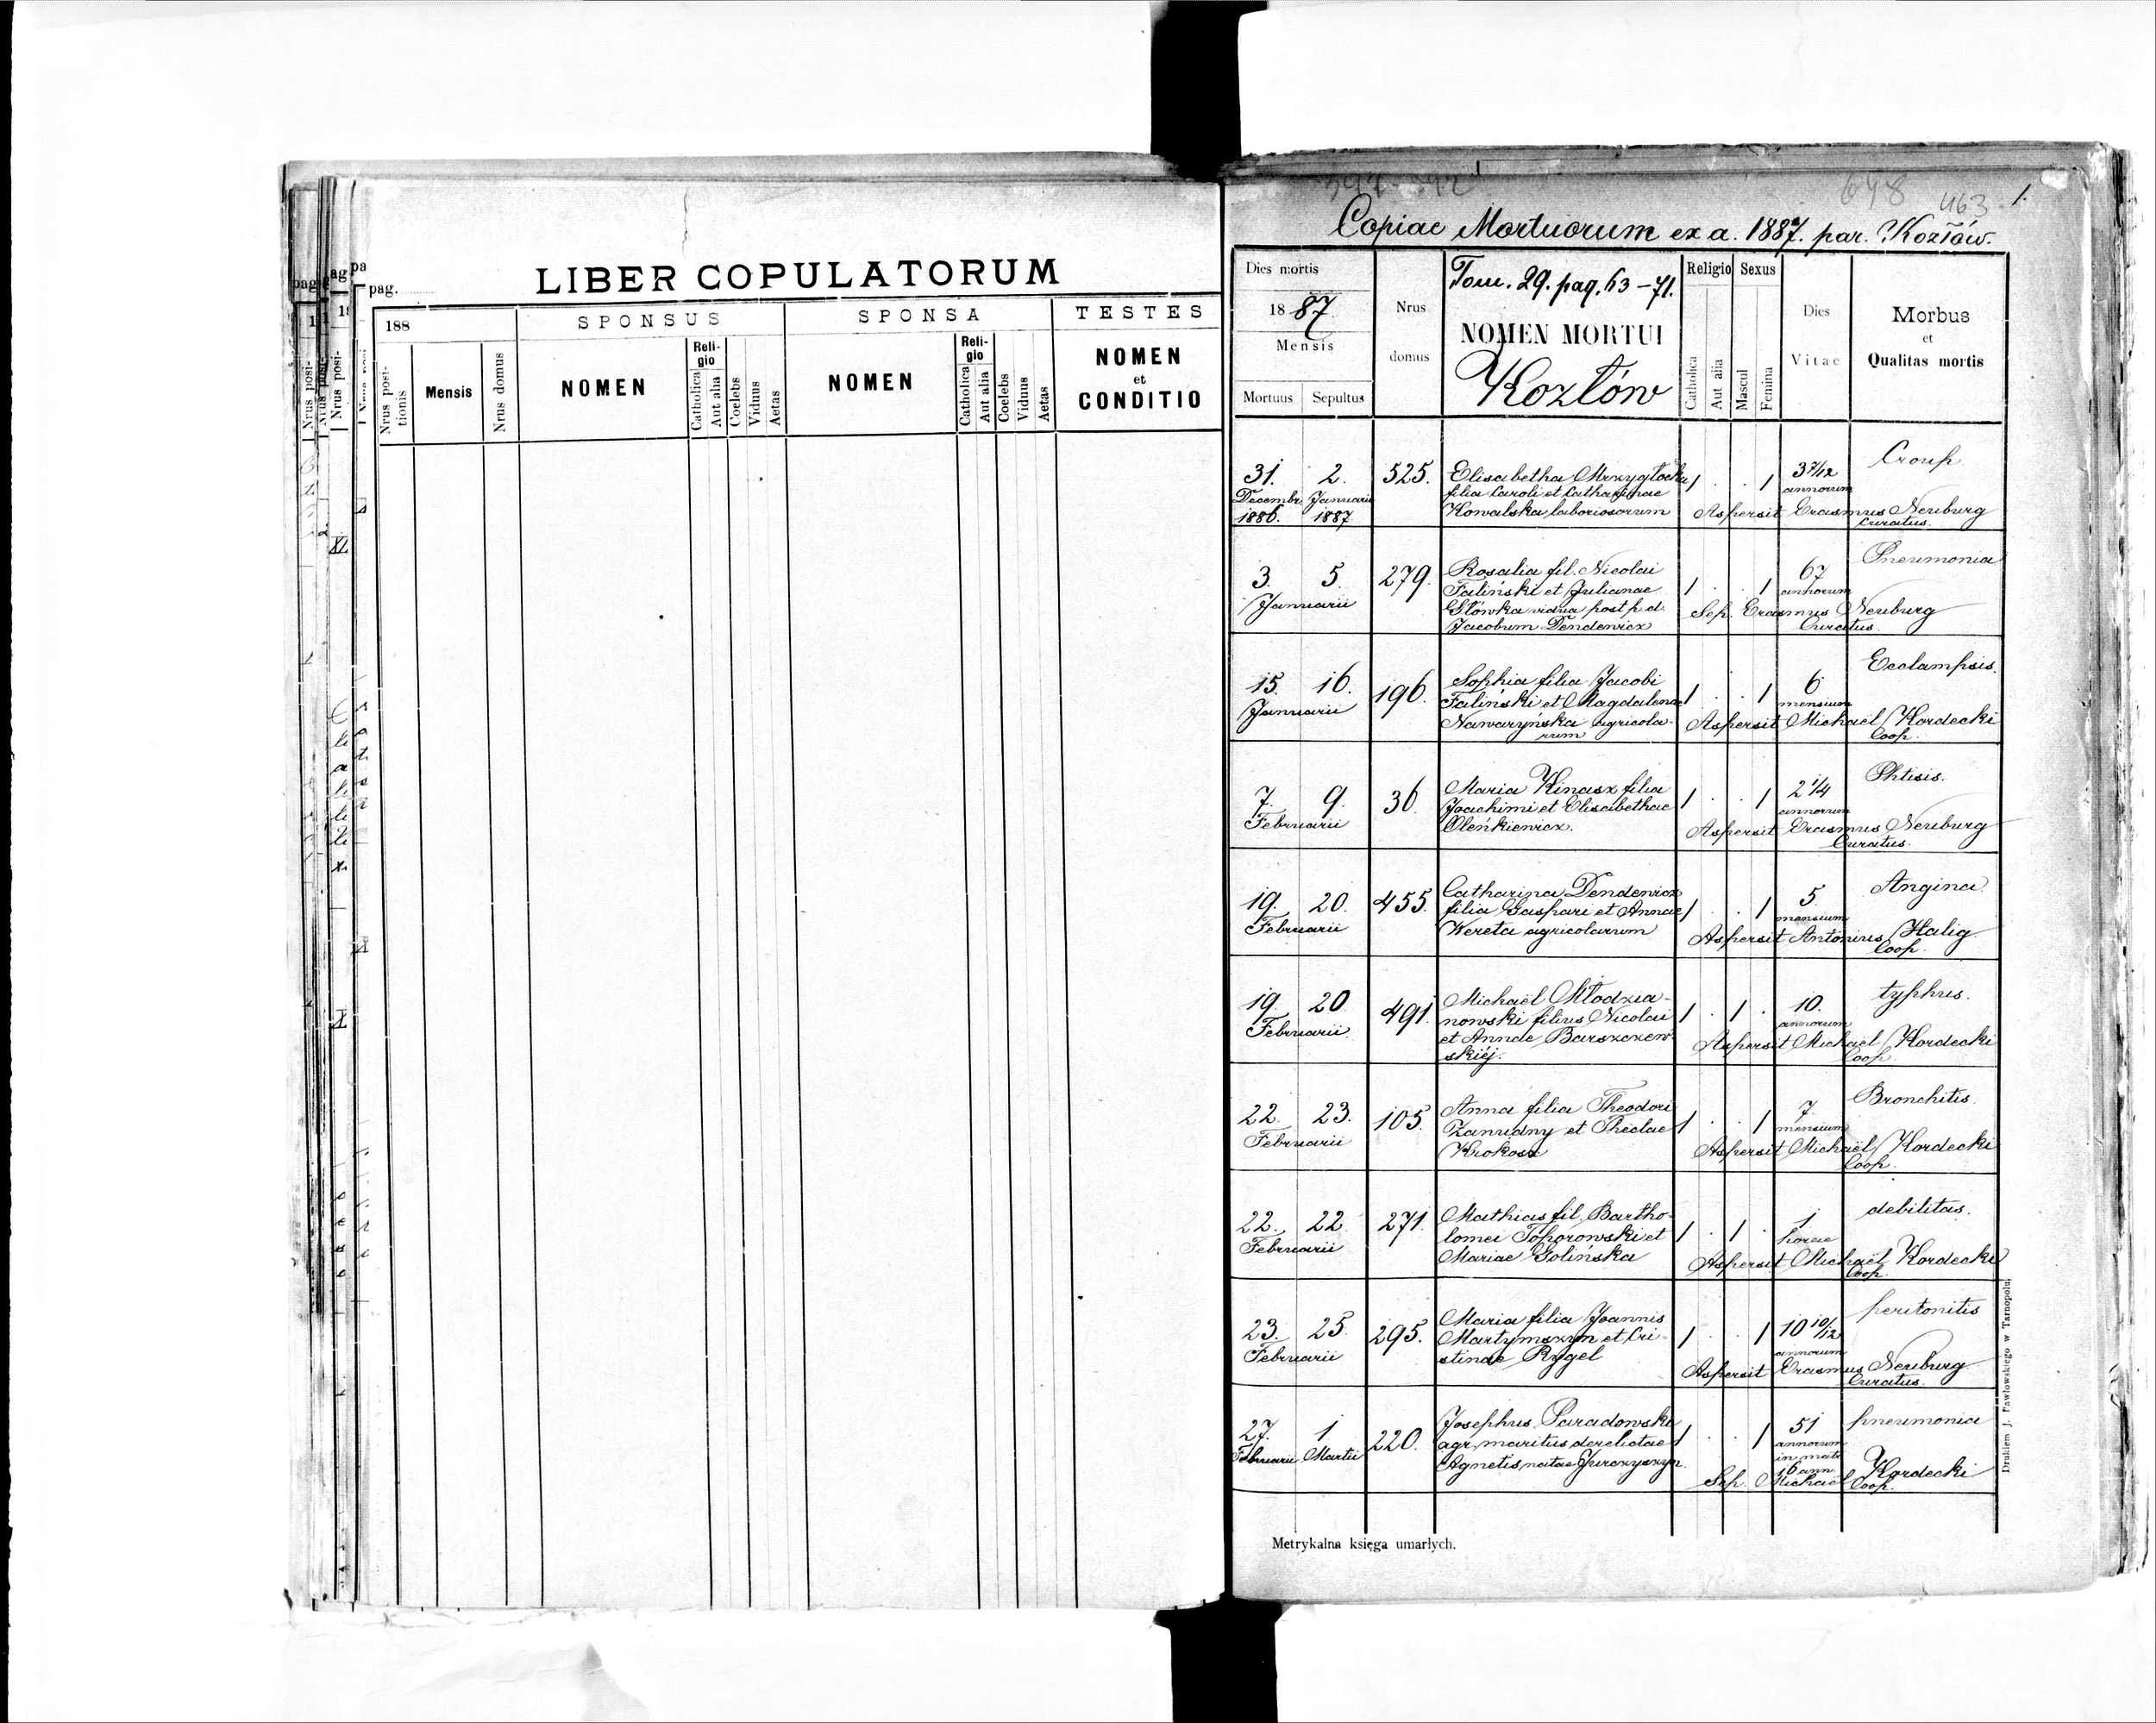 LIBER COPULATORUM
pag.
188
SPONSUS
SPONSA
TESTES
Nrus positionis
Mensis
Nrus domus
NOMEN
Religio
Catholica
Aut alia
Coelebs
Viduus
Aetas
NOMEN
Religio
Catholica
Aut alia
Coelebs
Vidua
Aetas
NOMEN
et
CONDITIO
648 463 1.
Copiae Mortuorum ex a. 1887. par. Kozłów.
Dies mortis
1887
Mensis
Mortuus Sepultus
Nrus
domus
Tom. 29. pag. 63-71.
NOMEN MORTUI
Kozłów
Religio
Catholica
Aut alia
Sexus
Mascul
Femina
Dies
Vitae
Morbus
et
Qualitas mortis
31. 2. 525. Elisabetha Mrzygłocka 1 . . 1 3 7/12 Croup
Decembr. Januarii filia Caroli et Catharinae annorum
1886. 1887 Kowalska laboriosorum Aspersit Erasmus Neuburg
Curatus.
3. 5. 279. Rosalia fil. Nicolai 1 . . 1 67 Pneumonia
Januarii Faliński et Julianae annorum
Główka vidua post p. d. Sep. Erasmus Neuburg
Jacobum Dendewicz Curatus.
15. 16. 196. Sophia filia Jacobi 1 . . 1 6 Ecclampsis.
Januarii Faliński et Magdalenae mensium
Nawaryńska agricola- Aspersit Michael Kordecki
rum Coop.
7. 9. 36. Maria Kinasz filia 1 . . 1 2 1/4 Phtisis.
Februarii Joachimi et Elisabethae annorum
Oleńkiewicz. Aspersit Erasmus Neuburg
Curatus.
19. 20. 455. Catharina Dendewicz 1 . . 1 5 Angina.
Februarii filia Gaspari et Annae mensium
Wereta agricolarum Aspersit Antonius Halig
Coop.
19. 20. 491. Michaël Młodzia- 1 . 1 . 10. typhus.
Februarii nowski filius Nicolai annorum
et Annae Barszczew- Aspersit Michael Kordecki
skiéj. Coop.
22. 23. 105. Anna filia Theodori 1 . . 1 7. Bronchitis.
Februarii Zanudny et Theclae mensium
Krokosz Aspersit Michaël Kordecki
Coop.
22. 22. 271. Mathias fil. Bartho- 1 . 1 . 1 debilitas.
Februarii lomei Toporowski et horae
Mariae Golińska Aspersit Michaël Kordecki
Coop.
23. 25. 295. Maria filia Joannis 1 . . 1 10 10/12 peritonitis
Februarii Martymszyn et Cri- annorum
stinae Rygel Aspersit Erasmus Neuburg
Curatus.
27. 1 220. Josephus Paradowski 1 . . 1 51 pneumonia
Februarii Martii agr. maritus derelictae annorum
Agnetis natae Jurczyszyn in matr.
16 ann.
Sep. Michael Kordecki
Coop.
Metrykalna księga umarłych.
Drukiem J. Pawłowskiego w Tarnopolu.